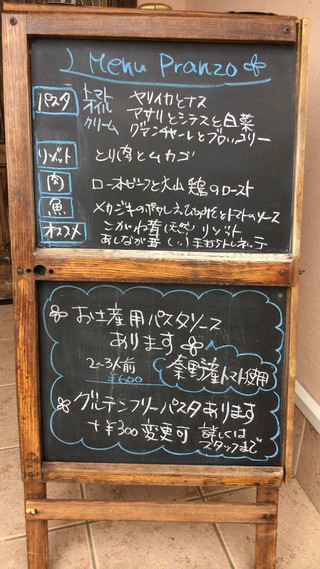 Menu Pranzo
パスタ トマト ヤリイカとナス
オイル アサリとシラスと白菜
クリーム グアンチャーレとブロッコリー
リゾット とり肉とムカゴ
肉 ローストビーフと大山鶏のロースト
魚 メカジキのポワレ トマトのソース
オススメ こがね茸(天然)リゾット
あしなが茸
お土産用パスタソース
あります
2〜3人前 秦野産トマト使用
¥600
グルテンフリーパスタあります
+¥300変更可 詳しくは
スタッフまで